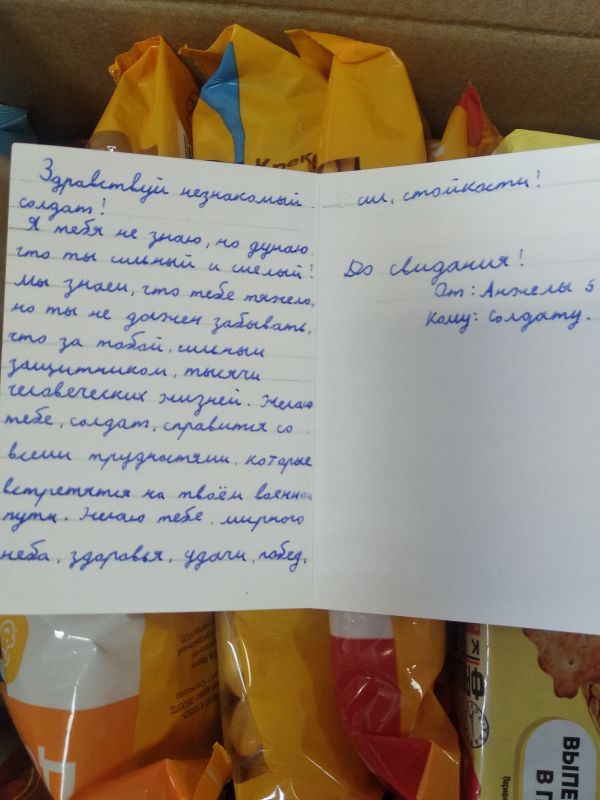 Крек
Здравствуй незнакомый
солдат!
Я тебя не знаю, но думаю
что ты сильный и смелый!
Мы знаем, что тебе тяжело,
но ты не должен забывать,
что за тобой, сильным
защитником, тысячи
человеческих жизней. Желаю
тебе, солдат, справится со
всеми трудностями, которые
встретятся на твоём военном
пути. Желаю тебе, мирного
неба, здоровья, удачи, побед,
сил, стойкости!
До свидания!
От: Анжелы 5
Кому: Солдату.
ВЫПЕ
В П